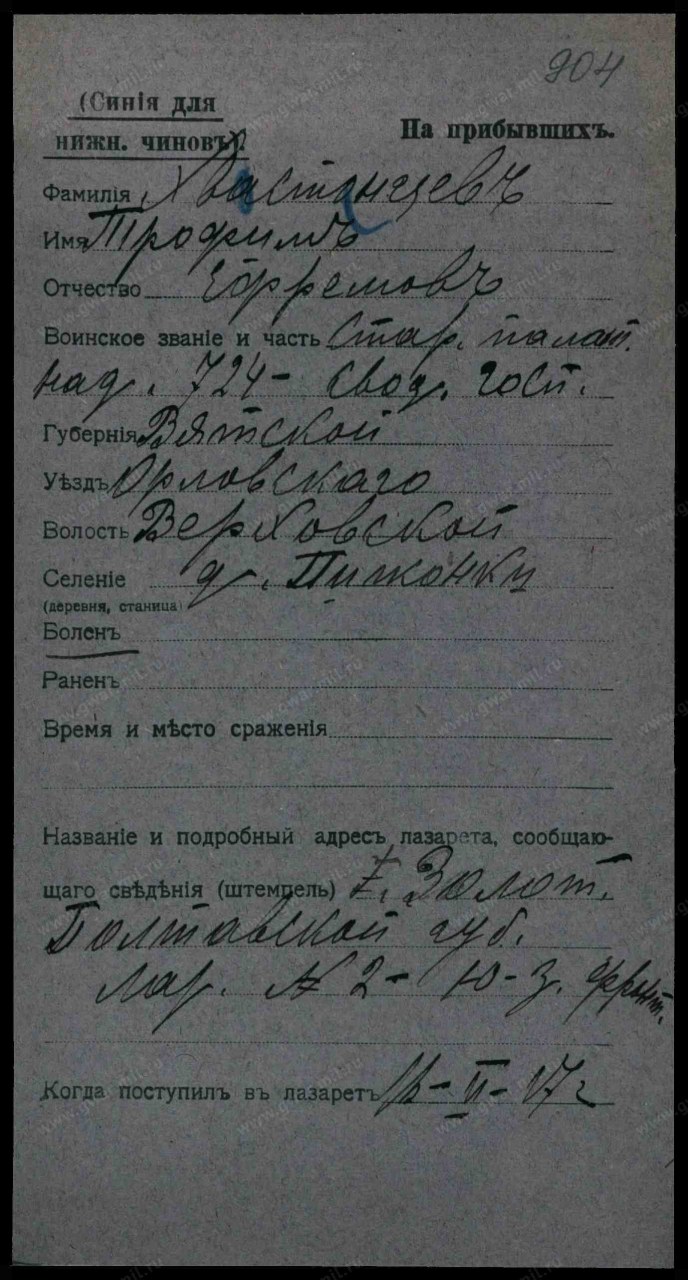 904
(Синія для
нижн. чиновъ).
На прибывшихъ.
Фамилія Хвастанцевъ
Имя Трофимъ
Отчество Ефремовъ
Воинское званіе и часть Стар. палат.
над. 724 - свод. госп.
Губернія Вятской
Уѣздъ Орловскаго
Волость Верховской
Селеніе д. Пижонки
(деревня, станица)
Боленъ
Раненъ
Время и мѣсто сраженія
Названіе и подробный адресъ лазарета, сообщаю-
щаго свѣдѣнія (штемпель) г. Золот.
Полтавской губ.
лаз. № 2 - Ю-З. фронт.
Когда поступилъ въ лазаретъ - II - 17 г